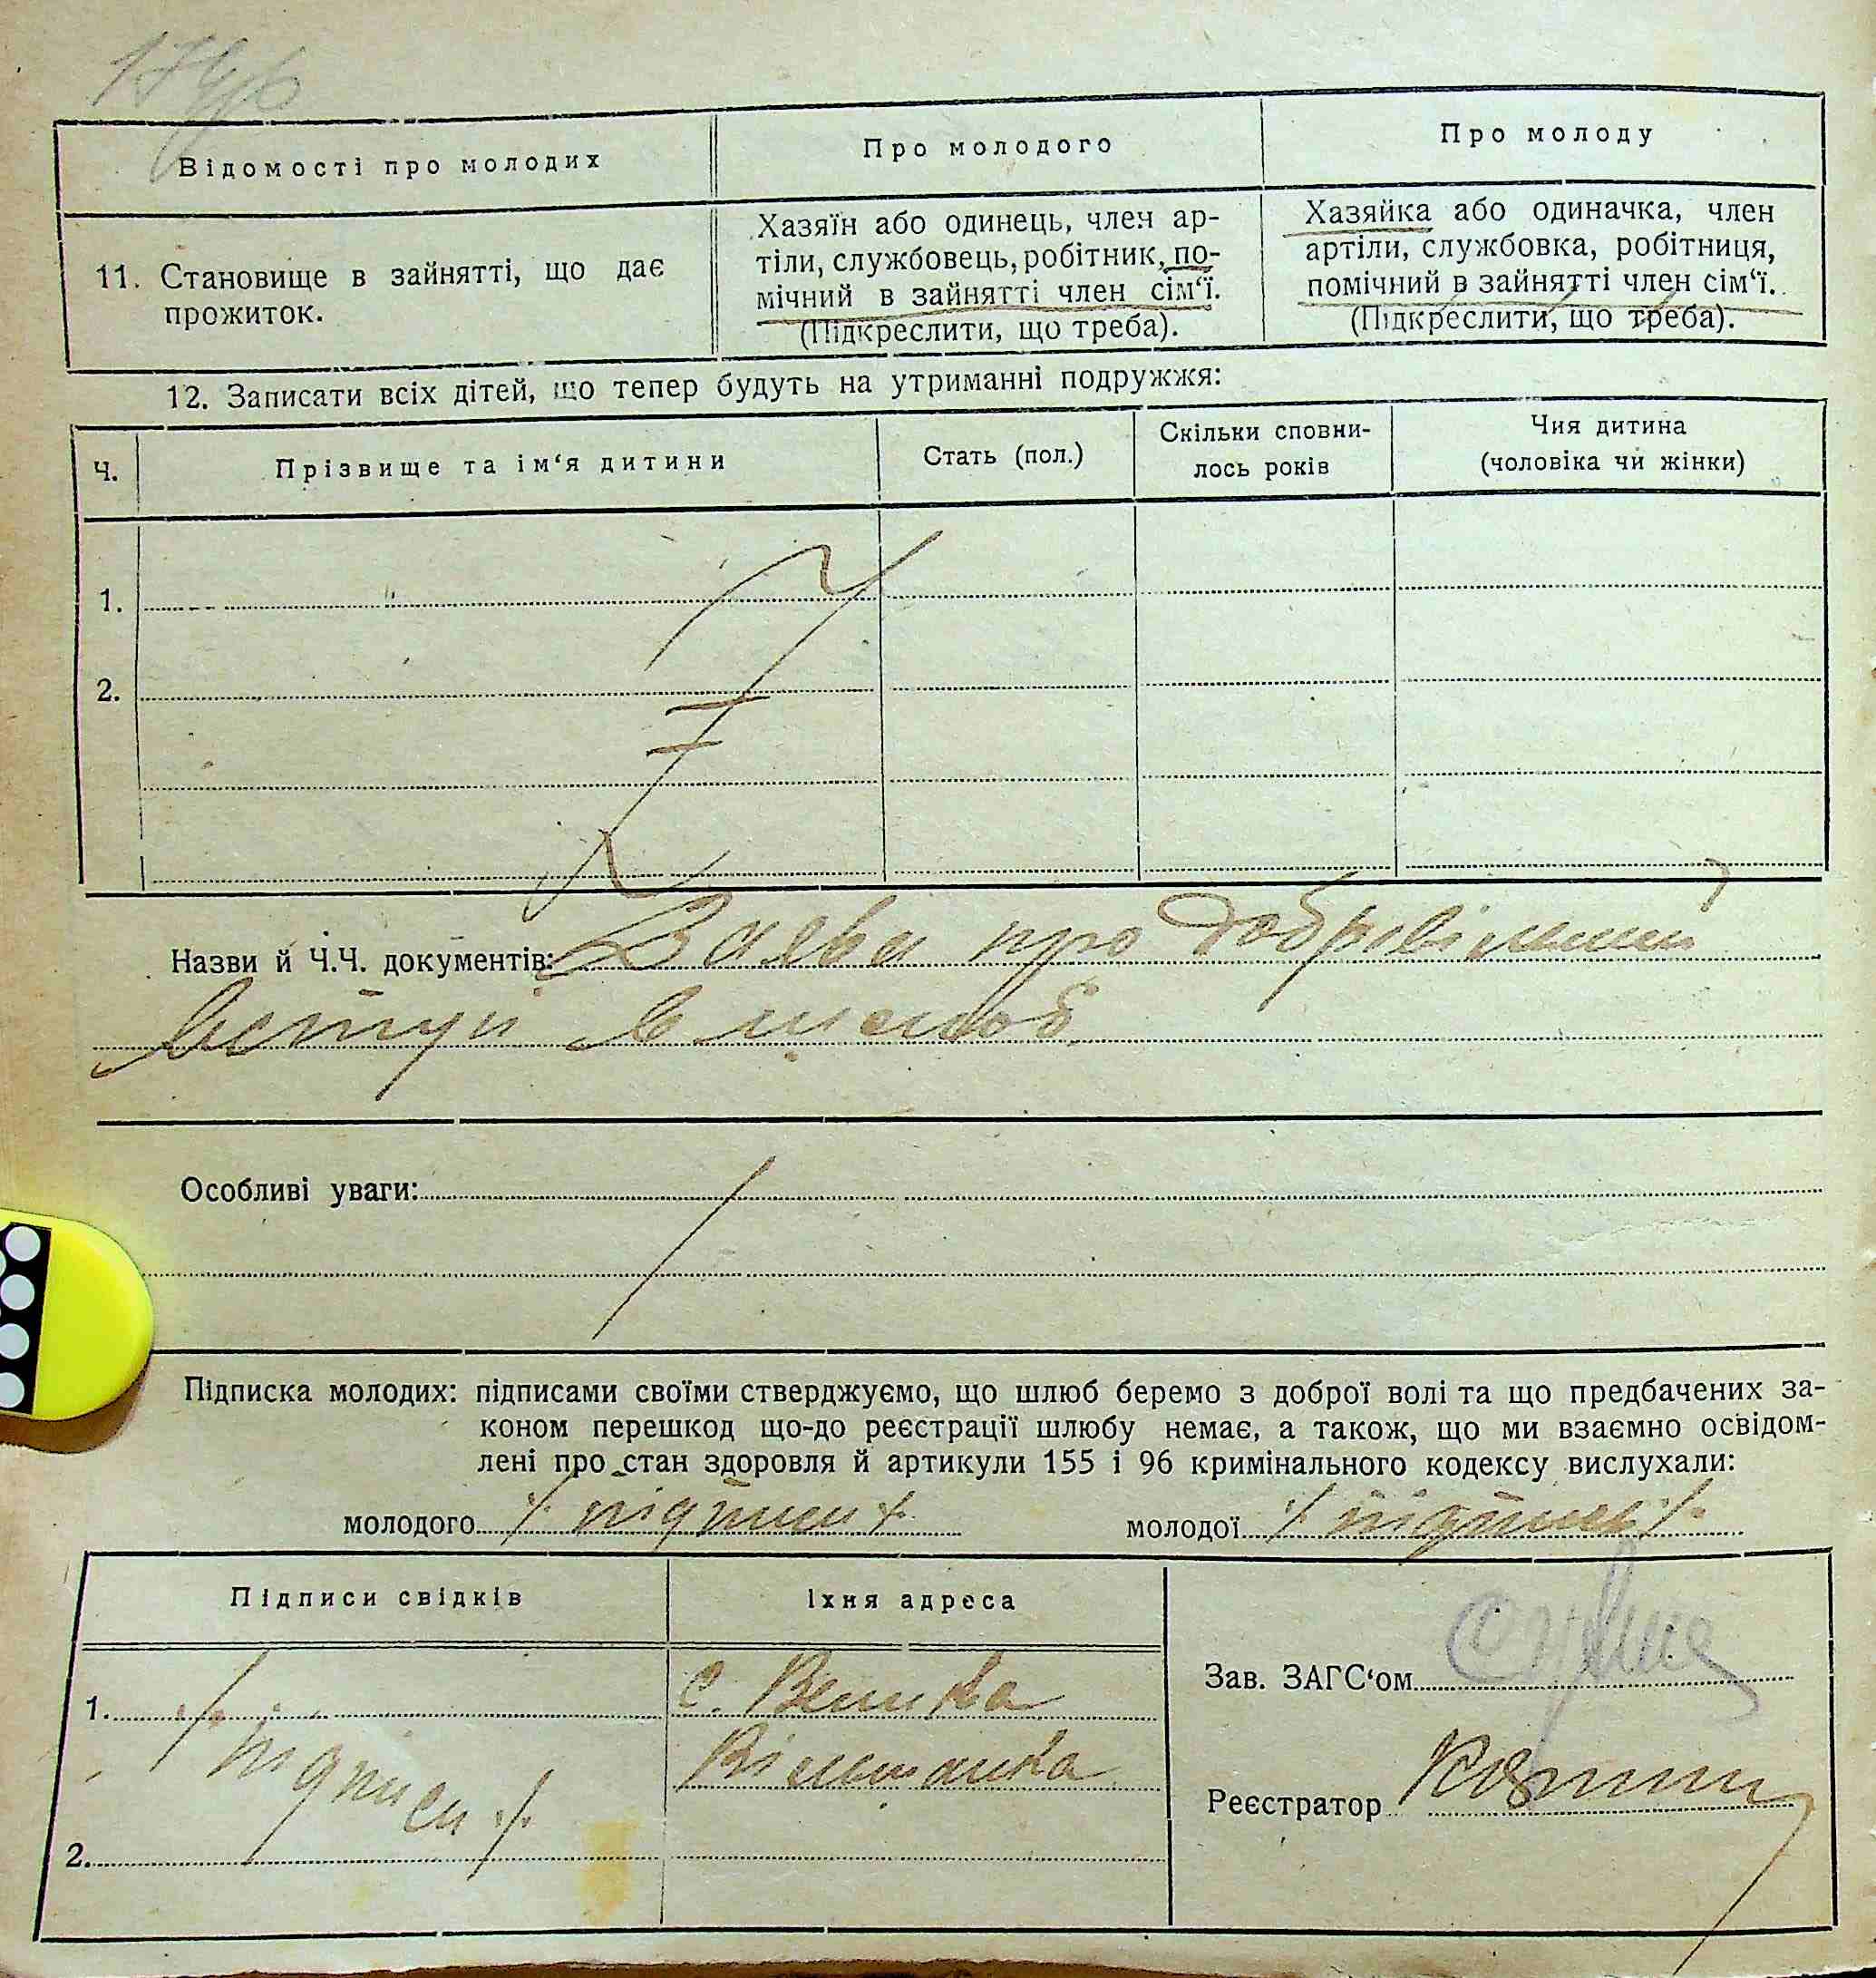 Відомості про молодих
Про молодого
Про молоду
11. Становище в зайнятті, що дає
прожиток.
Хазяїн або одинець, член ар-
тіли, службовець, робітник, по-
мічний в зайнятті член сім‘ї.
(Підкреслити, що треба).
Хазяйка або одиначка, член
артіли, службовка, робітниця,
помічний в зайнятті член сім‘ї.
(Підкреслити, що треба).
12. Записати всіх дітей, що тепер будуть на утриманні подружжя:
Ч.
Прізвище та ім‘я дитини
Стать (пол.)
Скільки сповни-
лось років
Чия дитина
(чоловіка чи жінки)
1.
2.
Назви й Ч.Ч. документів: Заява про добровільний
вступ в шлюб
Особливі уваги:
Підписка молодих: підписами своїми стверджуємо, що шлюб беремо з доброї волі та що предбачених за-
коном перешкод що-до реєстрації шлюбу немає, а також, що ми взаємно освідом-
лені про стан здоровля й артикули 155 і 96 кримінального кодексу вислухали:
молодого ·/· підпис ·/· молодої ·/· підпис ·/·
Підписи свідків
Їхня адреса
1. ·/· підписи ·/·
с. Велика
Вільшанка
2.
Зав. ЗАГС‘ом
Реєстратор